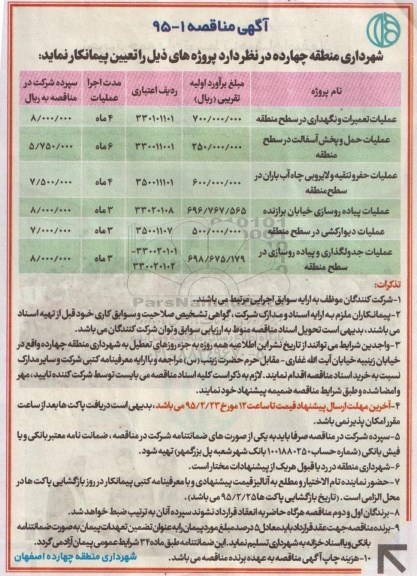 آگهی مناقصه ۱-۹۵
شهرداری منطقه چهارده در نظر دارد پروژه های ذیل را تعیین پیمانکار نماید:
نام پروژه | مبلغ برآورد اولیه تقریبی (ریال) | ردیف اعتباری | مدت اجرا عملیات | سپرده شرکت در مناقصه به ریال
عملیات تعمیرات و نگهداری در سطح منطقه | ۷۰۰/۰۰۰/۰۰۰ | ۳۳۰۱۰۱۱۰۱ | ۴ ماه | ۸/۰۰۰/۰۰۰
عملیات حمل و پخش آسفالت در سطح منطقه | ۲۵۰/۰۰۰/۰۰۰ | ۳۳۰۰۱۱۰۰۱ | ۶ ماه | ۵/۷۵۰/۰۰۰
عملیات حفر و تنقیه و لایروبی چاه آب باران در سطح منطقه | ۶۰۰/۰۰۰/۰۰۰ | ۳۵۰۰۱۱۱۰۱ | ۴ ماه | ۷/۵۰۰/۰۰۰
عملیات پیاده روسازی خیابان برازنده | ۶۹۶/۷۶۷/۵۶۵ | ۳۳۰۲۰۱۰۸ | ۳ ماه | ۸/۰۰۰/۰۰۰
عملیات دیوارکشی در سطح منطقه | ۵۰۰/۰۰۰/۰۰۰ | ۳۵۰۰۱۱۰۷ | ۳ ماه | ۷/۰۰۰/۰۰۰
عملیات جدولگذاری و پیاده روسازی در سطح منطقه | ۶۹۸/۶۷۵/۱۷۹ | ۳۳۰۰۲۰۱۰۱- ۳۳۰۰۲۰۱۰۲ | ۳ ماه | ۸/۰۰۰/۰۰۰
تذکرات:
۱-شرکت کنندگان موظف به ارایه سوابق اجرایی مرتبط می باشند.
۲-پیمانکاران ملزم به ارایه اسناد و مدارک شرکت، گواهی تشخیص صلاحیت و سوابق کاری خود قبل از تهیه اسناد
می باشند، بدیهی است تحویل اسناد مناقصه منوط به ارزیابی سوابق و توان شرکت کنندگان می باشد.
۳-واجدین شرایط می توانند از تاریخ نشر این اطلاعیه همه روزه به جز روزهای تعطیل به شهرداری منطقه چهارده واقع در
خیابان زینبیه خیابان آیت اله غفاری - مقابل حرم حضرت زینب (س) مراجعه و با ارایه معرفینامه کتبی شرکت و سایر مدارک
نسبت به خرید اسناد مناقصه اقدام نمایند. لازم به ذکر است کلیه اسناد مناقصه می بایست توسط شرکت کننده تایید، مهر
و امضا شده و طبق شرایط مناقصه ضمیمه پیشنهاد خود نمایند.
۴-آخرین مهلت ارسال پیشنهاد قیمت تا ساعت ۱۲ مورخ ۹۵/۲/۲۳ می باشد، بدیهی است دریافت پاکت ها بعد از ساعت
مقرر امکان پذیر نمی باشد.
۵-سپرده شرکت در مناقصه صرفا باید به یکی از صورت های ضمانتنامه شرکت در مناقصه، ضمانت نامه معتبر بانکی و یا
فیش بانکی (شماره حساب ۱۰۰۱۸۸۰۲۵۰ بانک شهر شعبه پل بزرگمهر) تهیه شود.
۶-شهرداری منطقه در رد یا قبول هر یک از پیشنهادات مختار است.
۷-حضور نماینده تام الاختیار و مطلع به آنالیز قیمت پیشنهادی و با معرفینامه کتبی پیمانکار در روز بازگشایی پاکت ها در
محل الزامی است. (تاریخ بازگشایی پاکت ها ۹۵/۲/۲۵ می باشد).
۸-برندگان اول و دوم مناقصه هرگاه حاضر به انعقاد قرارداد نشوند سپرده آنان به ترتیب ضبط خواهد شد.
۹-برنده مناقصه جهت عقد قرارداد باید معادل ۵ درصد مبلغ مورد پیمان را به عنوان تضمین تعهدات پیمان به صورت ضمانتنامه
بانکی و یا اسناد خزانه به شهرداری تسلیم نماید. این ضمانتنامه طبق ماده ۳۴ شرایط عمومی پیمان آزاد می گردد.
۱۰-هزینه چاپ آگهی مناقصه به عهده برنده مناقصه می باشد.
شهرداری منطقه چهارده اصفهان